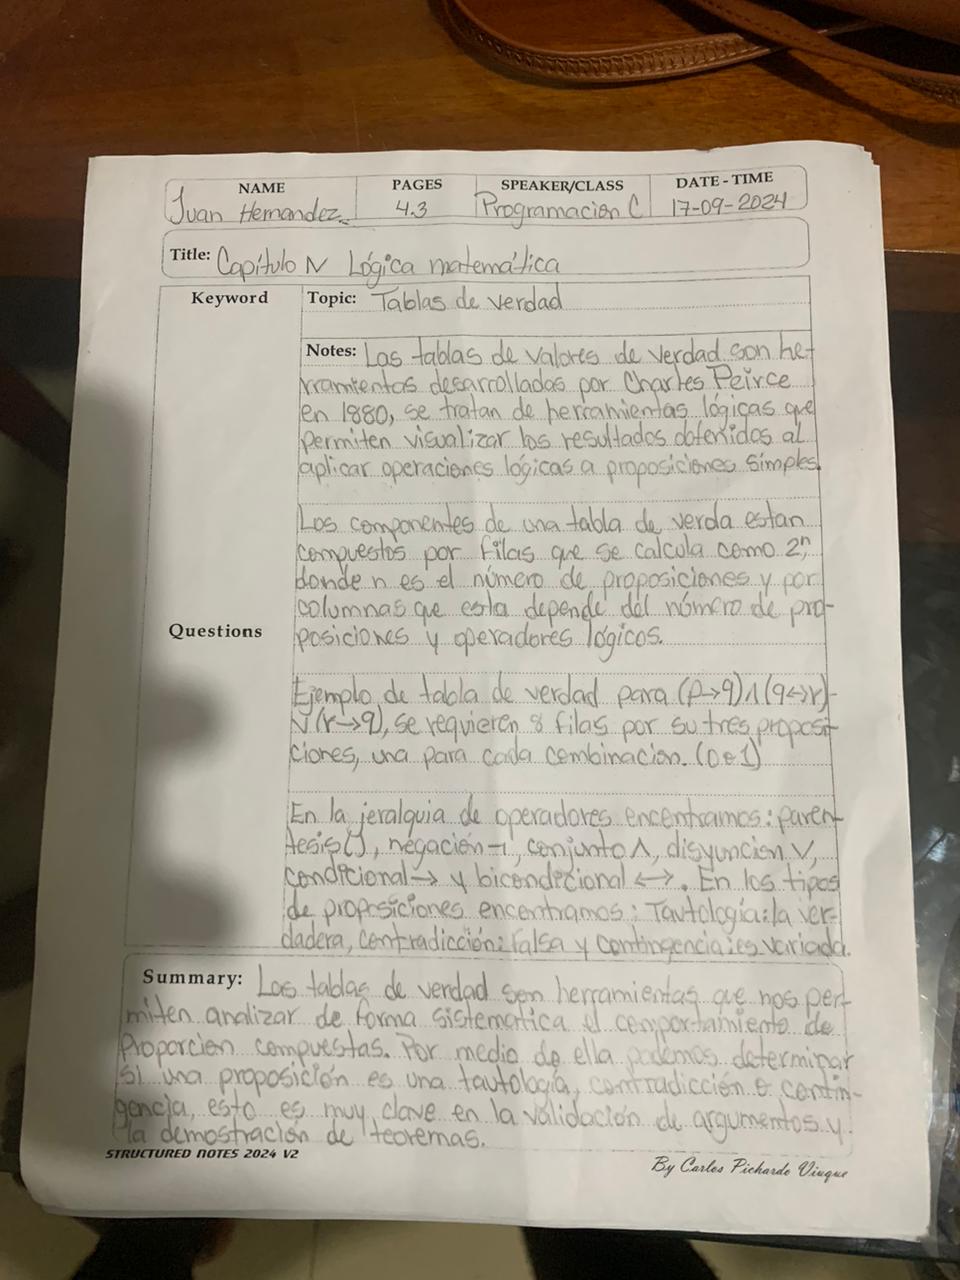 NAME PAGES SPEAKER/CLASS DATE - TIME
Juan Hernandez 4.3 Programación C 17-09-2024
Title: Capítulo IV Lógica matemática
Keyword
Topic: Tablas de verdad
Notes: Las tablas de valores de verdad son he-
rramientas desarrolladas por Charles Peirce
en 1880, se tratan de herramientas lógicas que
permiten visualizar los resultados obtenidos al
aplicar operaciones lógicas a proposiciones simples.
Los componentes de una tabla de verda estan
compuestos por filas que se calcula como 2ⁿ,
donde n es el número de proposiciones y por
columnas que esta depende del número de pro-
posiciones y operadores lógicos.
Questions
Ejemplo de tabla de verdad para (p→q)∧(q↔r)-
∨(r→q), se requieren 8 filas por su tres proposi-
ciones, una para cada combinacion. (0 o 1)
En la jeralquia de operadores encentramos: paren-
tesis(), negación ¬, conjunto ∧, disyuncion ∨,
condicional → y bicondicional ↔. En los tipos
de proposiciones encentramos: Tautología: la ver-
dadera, contradicción: falsa y contingencia: es variada.
Summary: Las tablas de verdad son herramientas que nos per-
miten analizar de forma sistematica el comportamiento de
proporcion compuestas. Por medio de ella podemos determinar
si una proposición es una tautología, contradicción o contin-
gencia, esto es muy clave en la validación de argumentos y
la demostración de teoremas.
STRUCTURED NOTES 2024 V2
By Carlos Pichardo Viuque